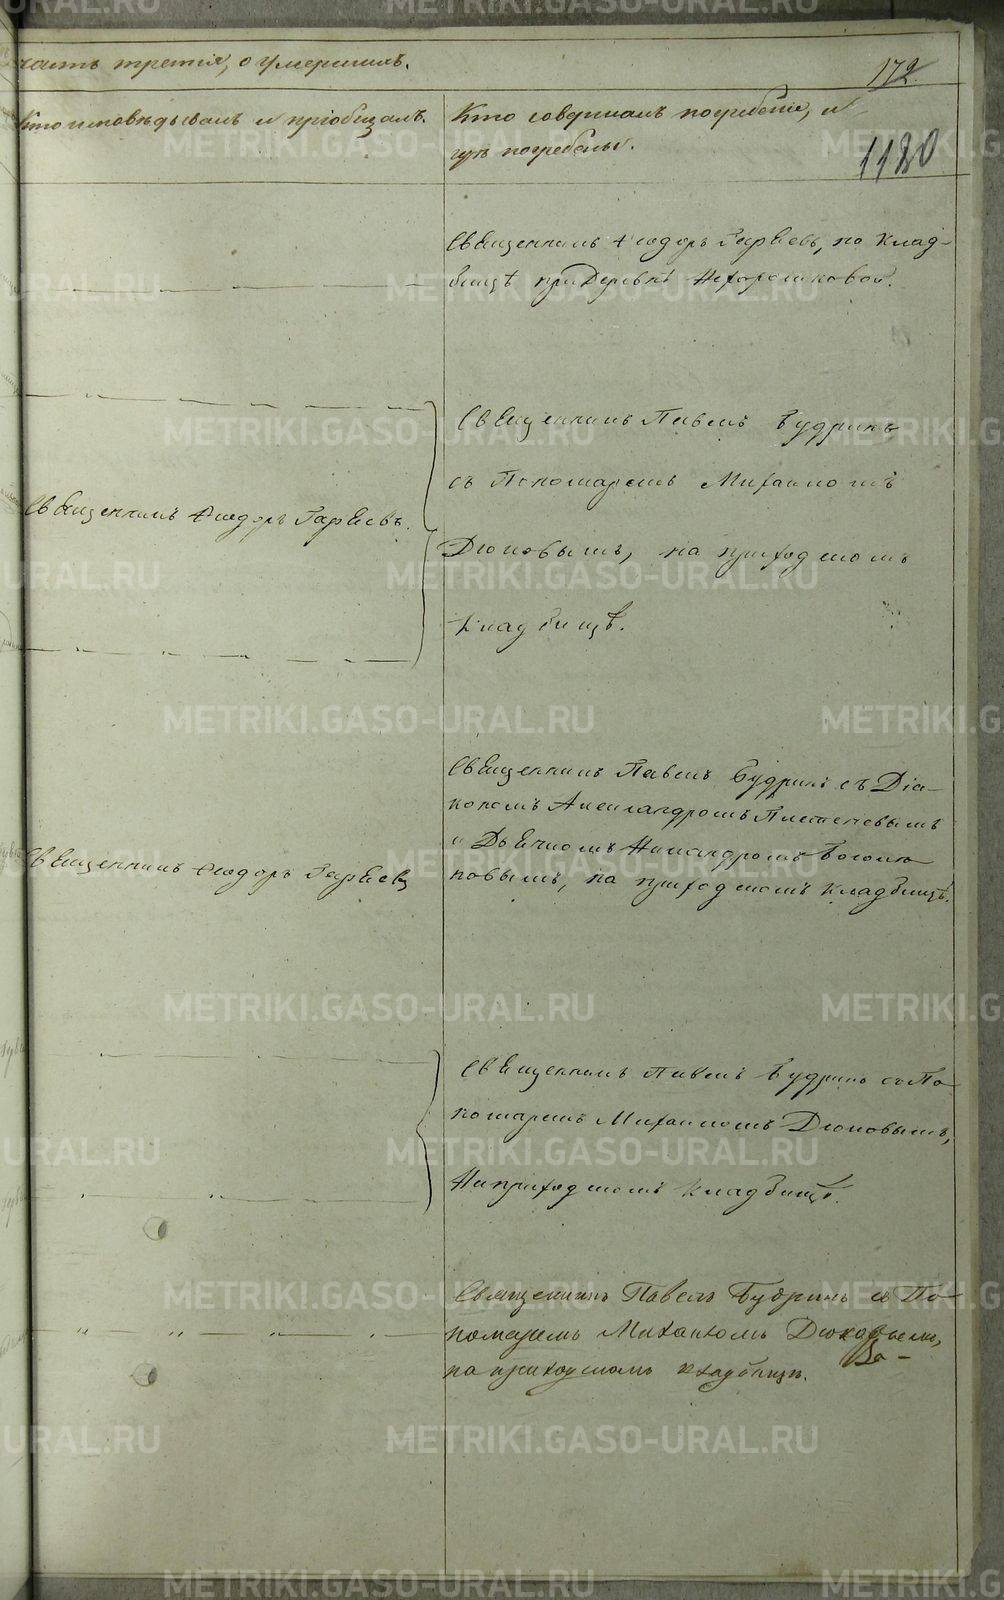 часть третія, о умершихъ.
172
Кто исповѣдывалъ и пріобщалъ.
Кто совершалъ погребеніе, и
гдѣ погребены.
1120
Священникъ Ѳеодоръ Гаряевъ, на Клад-
бищѣ при Деревнѣ Нехорошковой.
Священникъ Павелъ Будринъ
съ Пономаремъ Михаиломъ
Священникъ Ѳеодоръ Гаряевъ.
Дюковымъ, на приходскомъ
Кладбищѣ.
Священникъ Павелъ Будринъ съ Діа-
кономъ Александромъ Плетеневымъ
и Дьячкомъ Никандромъ
Священникъ Ѳеодоръ Гаряевъ
на приходскомъ кладбищѣ.
Священникъ Павелъ Будринъ съ По-
номаремъ Михаиломъ Дюковымъ,
На приходскомъ кладбищѣ.
Священникъ Павелъ Будринъ съ По-
номаремъ Михаиломъ Дюковымъ,
на приходскомъ кладбищѣ.
METRIKI.GASO-URAL.RU